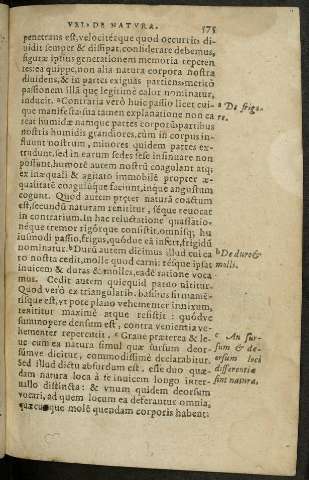 VEL DE NATVRA. 575
penetrans est, velocitérque quod occurrit di-
uidit semper & dissipat, considerare debemus,
figuræ ipsius generationem memoria repeten
tes: ea quippe, non alia natura corpora nostra
diuidens, & in partes exiguas partiens, meritò
passionem illā quæ legitimè calor nominatur,
inducit. Contraria verò huic passio licet cui-
que manifesta sit, tamen explanatione non ca
reat. humidæ namque partes corporū partibus
nostris humidis grandiores, cùm in corpus in-
fluunt nostrum, minores quidem partes ex-
trudunt, sed in earum sedes sese insinuare non
possunt, humoré autem nostrū coagulant atq;
ex inæquali & agitato immobilē propter æ-
qualitatē coagulūsque faciunt, inque angustum
cogunt. Quod autem præter naturā coactum
est, secundū naturam renititur, séque reuocat
in contrarium. In hac reluctatione quassatio-
néque tremor rigórque consistit, omnisq; hu
iusmodi passio, frigus, quódue ea infert, frigidū
nominatur. Durū autem dicimus illud cui ca
ro nostra cedit, molle quod carni: résque ipsæ
inuicem & duras & molles, eadē ratione voca
mus. Cedit autem quicquid parao nititur.
Quod verò ex triangularib. basibus sit: manē-
tisque est, vt pote plano vehementer innixum,
renititur maximè atque resistit: quódve
summopere densum est, contra venientia ve-
hementer repercutit. Graue præterea & le-
ue cum ea natura simul quæ sursum deor-
sumve dicitur, commodissimè declarabitur.
Sed illud dictu absurdum est, esse duo quæ-
dam natura loca à se inuicem longo inter-
uallo distincta: & vnum quidem deorsum
vocari, ad quem locum ea deferantur omnia,
quæcunque molē quendam corporis habent:
a De frigo-
re.
b De duro &
molli.
c An sur-
sum & de-
orsum loci
differentiæ
sint natura.